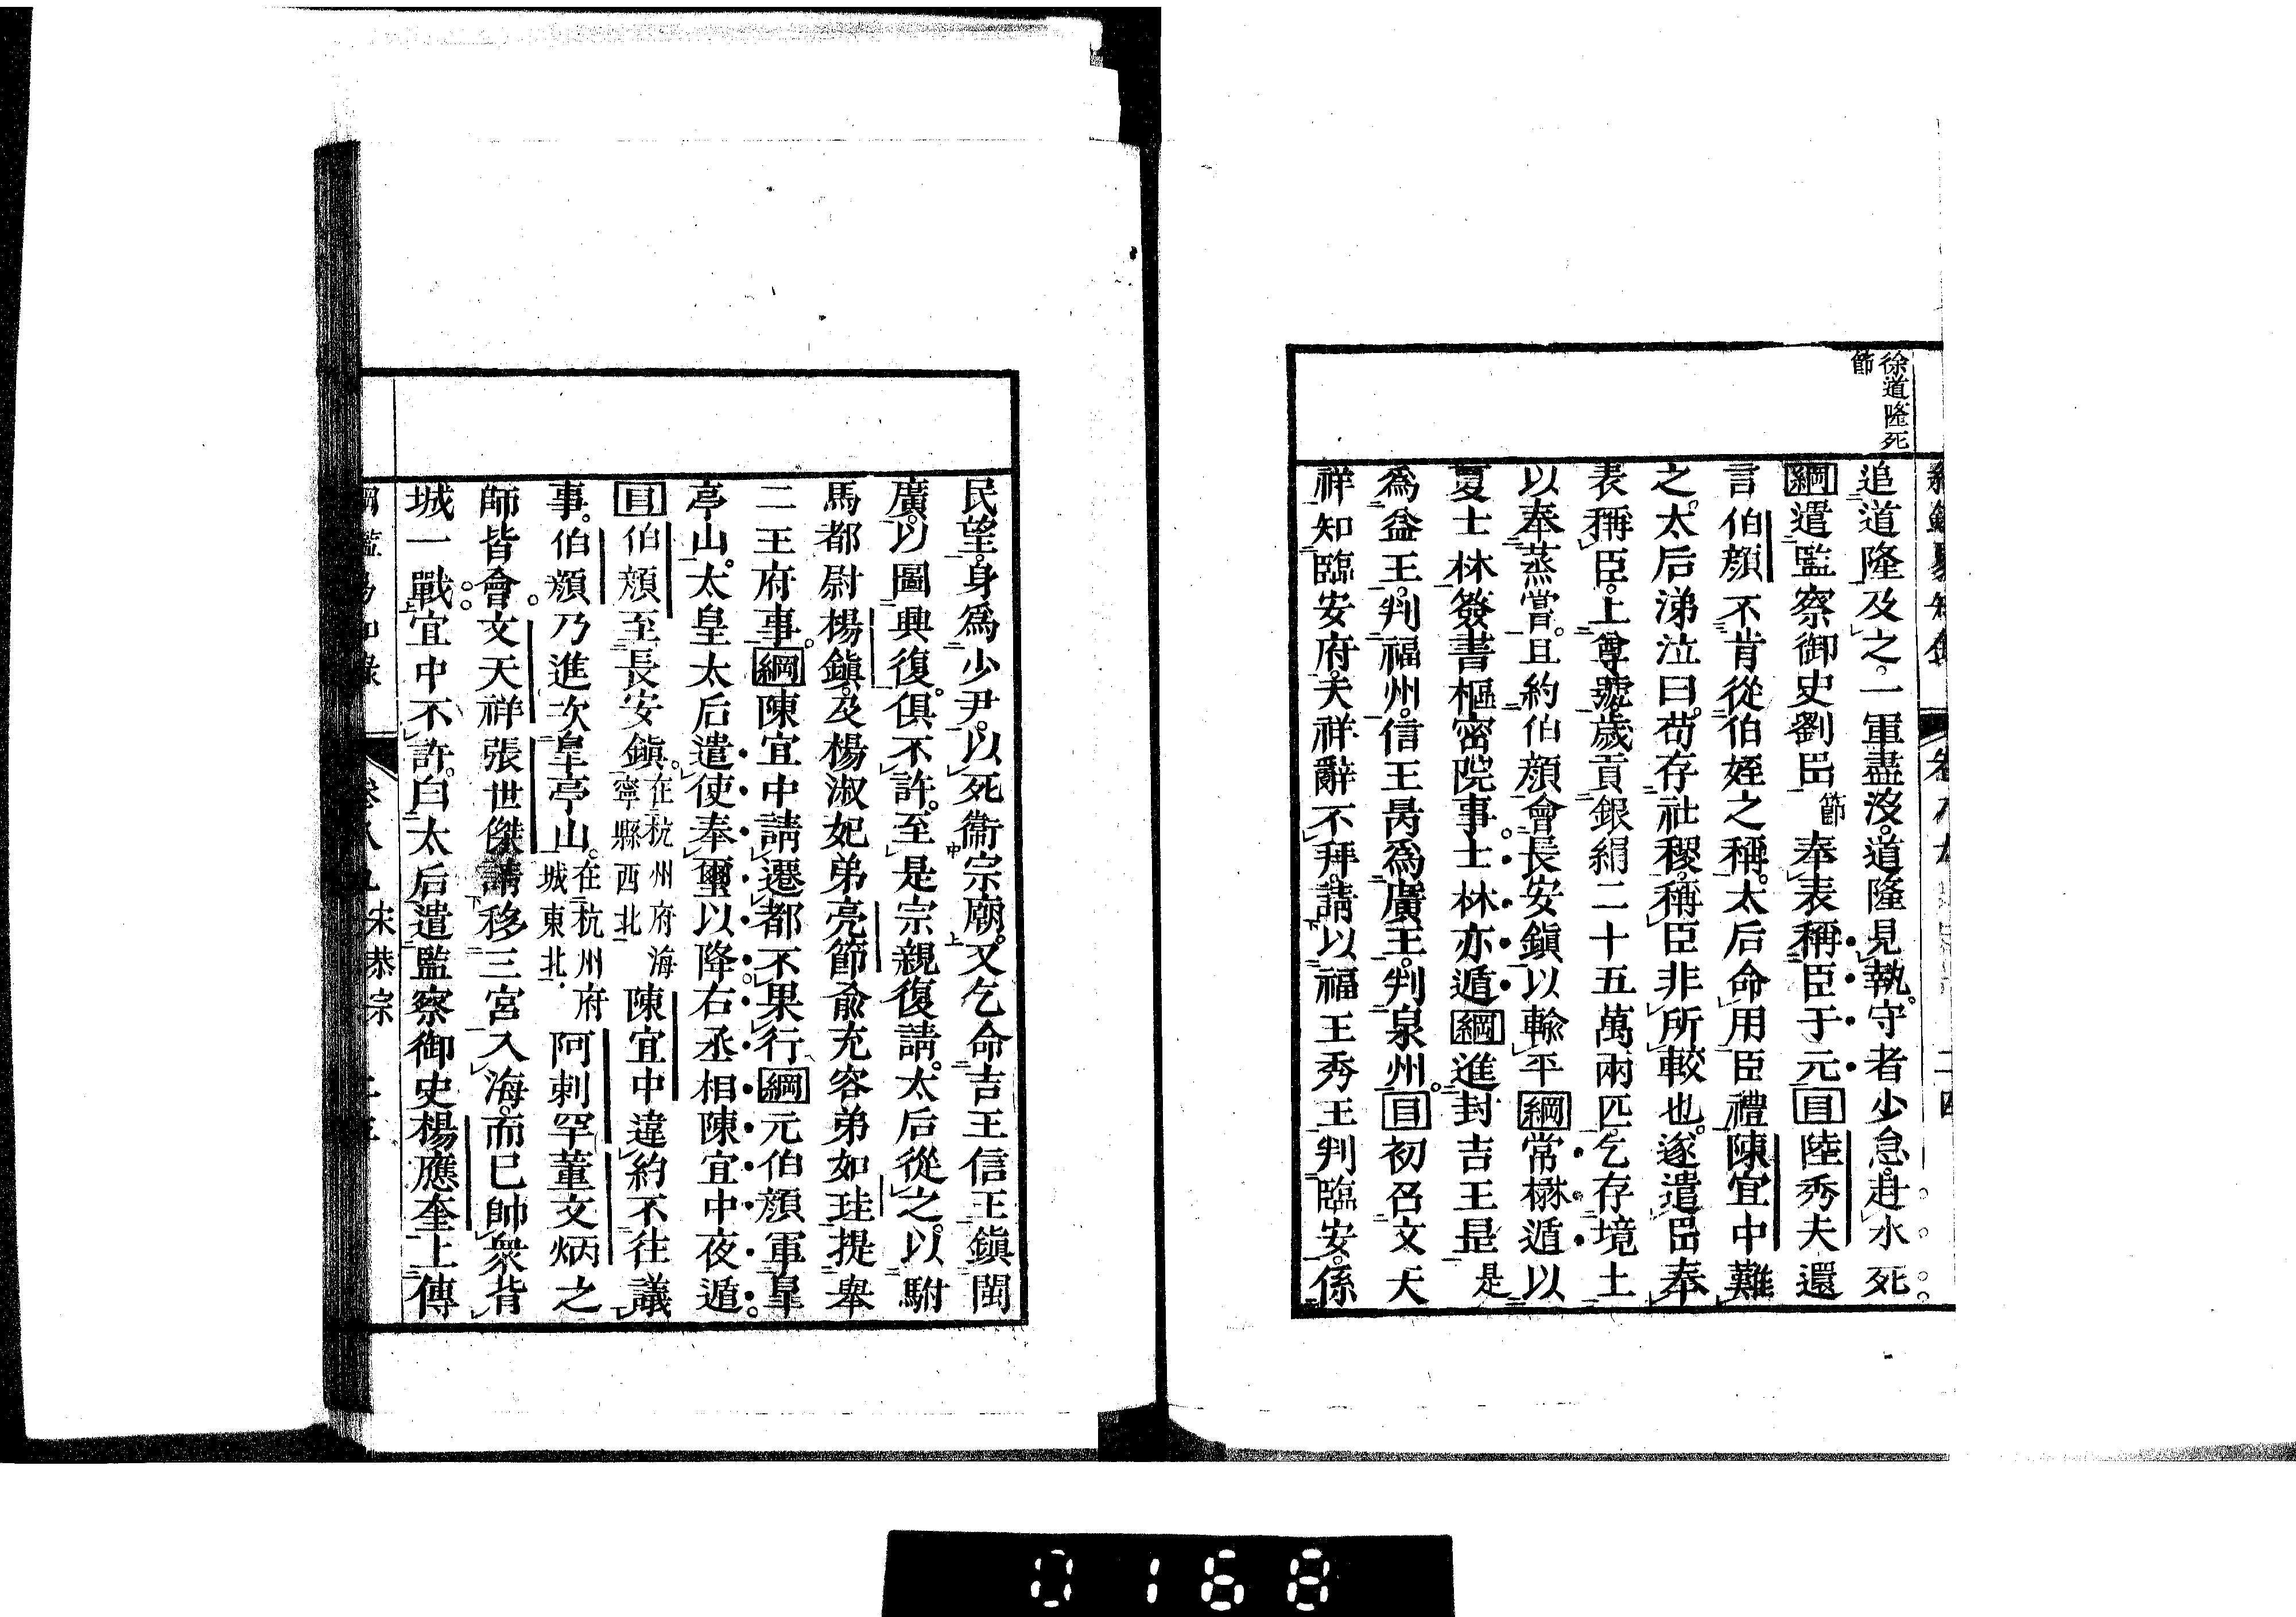 徐道隆死
節
追道隆及之。一軍盡沒。道隆見執。守者少怠。赴水死
綱遣監察御史劉岊節奉表稱臣于元目陸秀夫還
言伯顏不肯從伯姪之稱。太后命用臣禮陳宜中難
之。太后涕泣曰。苟存社稷。稱臣非所較也。遂遣岊奉
表稱臣。上尊號歲貢銀絹二十五萬兩匹。乞存境土
以奉蒸嘗。且約伯顏會長安鎭以輸平綱常楙遁以
夏士林簽書樞密院事。士林亦遁綱進封吉王昰是
爲益王。判福州。信王昺爲廣王。判泉州。目初召文天
祥知臨安府。天祥辭不拜。請以福王秀王判臨安。係
民望。身爲少尹。以死衞宗廟。又乞命吉王信王鎭閩
廣。以圖興復。俱不許。至是宗親復請。太后從之。以駙
馬都尉楊鎭。及楊淑妃弟亮節俞充容弟如珪提舉
二王府事。綱陳宜中請遷都不果行綱元伯顏軍皋
亭山。太皇太后遣使奉璽以降右丞相陳宜中夜遁。
目伯顏至長安鎭。在杭州府海寧縣西北陳宜中違約不往議
事。伯顏乃進次皋亭山。在杭州府城東北阿剌罕董文炳之
師皆會。文天祥張世傑請移三宮入海。而已帥衆背
城一戰。宜中不許。白太后遣監察御史楊應奎上傳
宋恭宗
0168